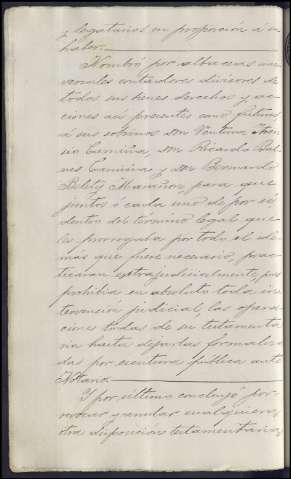 y legatarios en proporción á su
haber.
Nombró por albaceas uni-
versales contadores divisores de
todos sus bienes derechos y ac-
ciones asi presentes como futuros
á sus sobrinos don Ventura
Camiña, don Ricardo
Camiña y don Bernardo
para que
juntos ó cada uno de por sí
dentro del término legal que
les prorrogaba por todo el de-
más que fuese necesario, prac-
ticaran extrajudicialmente, pues
prohibía en absoluto toda in-
tervención judicial, las opera-
ciones todas de su testamenta-
ria hasta dejarlas formaliza-
das por escritura pública ante
Notario.
Y por último concluyó por
revocar y anular cualquiera
otra disposición testamentaria,